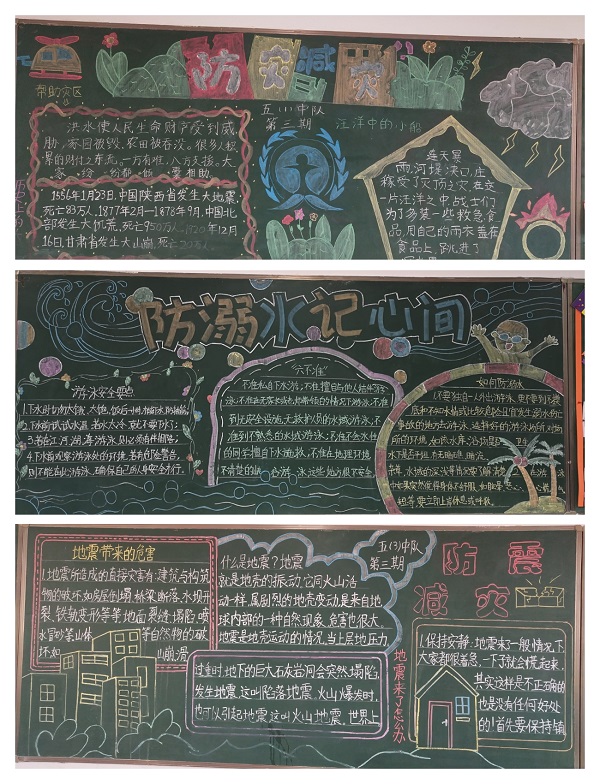 防灾减灾
帮助灾区
五(1)中队
第三期
汪洋中的小船
洪水使人民生命财产受到威
胁,家园被毁,农田被吞没。很多人积
累的财付之东流。一方有难,八方支援。大
家纷纷都
要相助
1556年1月23日,中国陕西省发生大地震,
死亡83万人,1877年2月—1878年9月,中国北
部发生大饥荒,死亡950万人,1920年12月
16日,甘肃省发生大山崩,死亡20万人
连天暴
雨,河堤决口,庄
稼受了灭顶之灾,在这
一片汪洋之中,战士们
为了多装一些救急食
品,用自己的雨衣盖在
食品上,跳进了
防溺水记心间
游泳安全要点
1.下水时切勿太饿、太饱。饭后一小时
2.下水前试试水温,若水太冷,就不要下水;
3.若在江、河、湖、海游泳,则必须有伴相陪;
4.下水前观察游泳处的环境,若有危险警告,
则不能在此游泳,确保自己的人身安全才行。
“六不准”
不准私自下水游;不准擅自与他人结伴游
泳;不准在无家长或老师带领的情况下游泳;不准
到无安全设施、无救护人员的水域游泳;不
准到不熟悉的水域游泳;不准不会水性
的同学擅自下水施救,不准在地理环境
不清楚的
游泳,这些地方很不安全。
如何防溺水
不要独自一人外出游泳,更不要到不摸
底和不知水情或比较危险且宜发生溺水伤亡
事故的地方去游泳。选择好的游泳场所,对场
所的环境,
地震带来的危害
1.地震所造成的直接灾害有:建筑与构筑
物的破坏,如房屋倒塌、桥梁断落、水坝开
裂、铁轨变形等等。地面裂缝、塌陷,喷
水冒砂等
山体
等自然物的破
坏如
山崩、滑
什么是地震?地震
就是地壳的振动,它同火山活
动一样,属剧烈的地壳变动,是来自地
球内部的一种自然现象,危害也很大。
地震是地壳运动的情况,当上层地压力
过重时,地下的巨大石灰岩洞会突然塌陷,
发生地震,这叫陷落地震,火山爆发时,
也可以引起地震,这叫火山地震。世界上
五(3)中队
第三期
防震
减灾
地震来了怎么办
1.保持安静:地震来了一般情况下,
大家都很着急,一下子就会慌起来,
其实这样是不正确的
也是没有任何好处
的!首先要保持镇